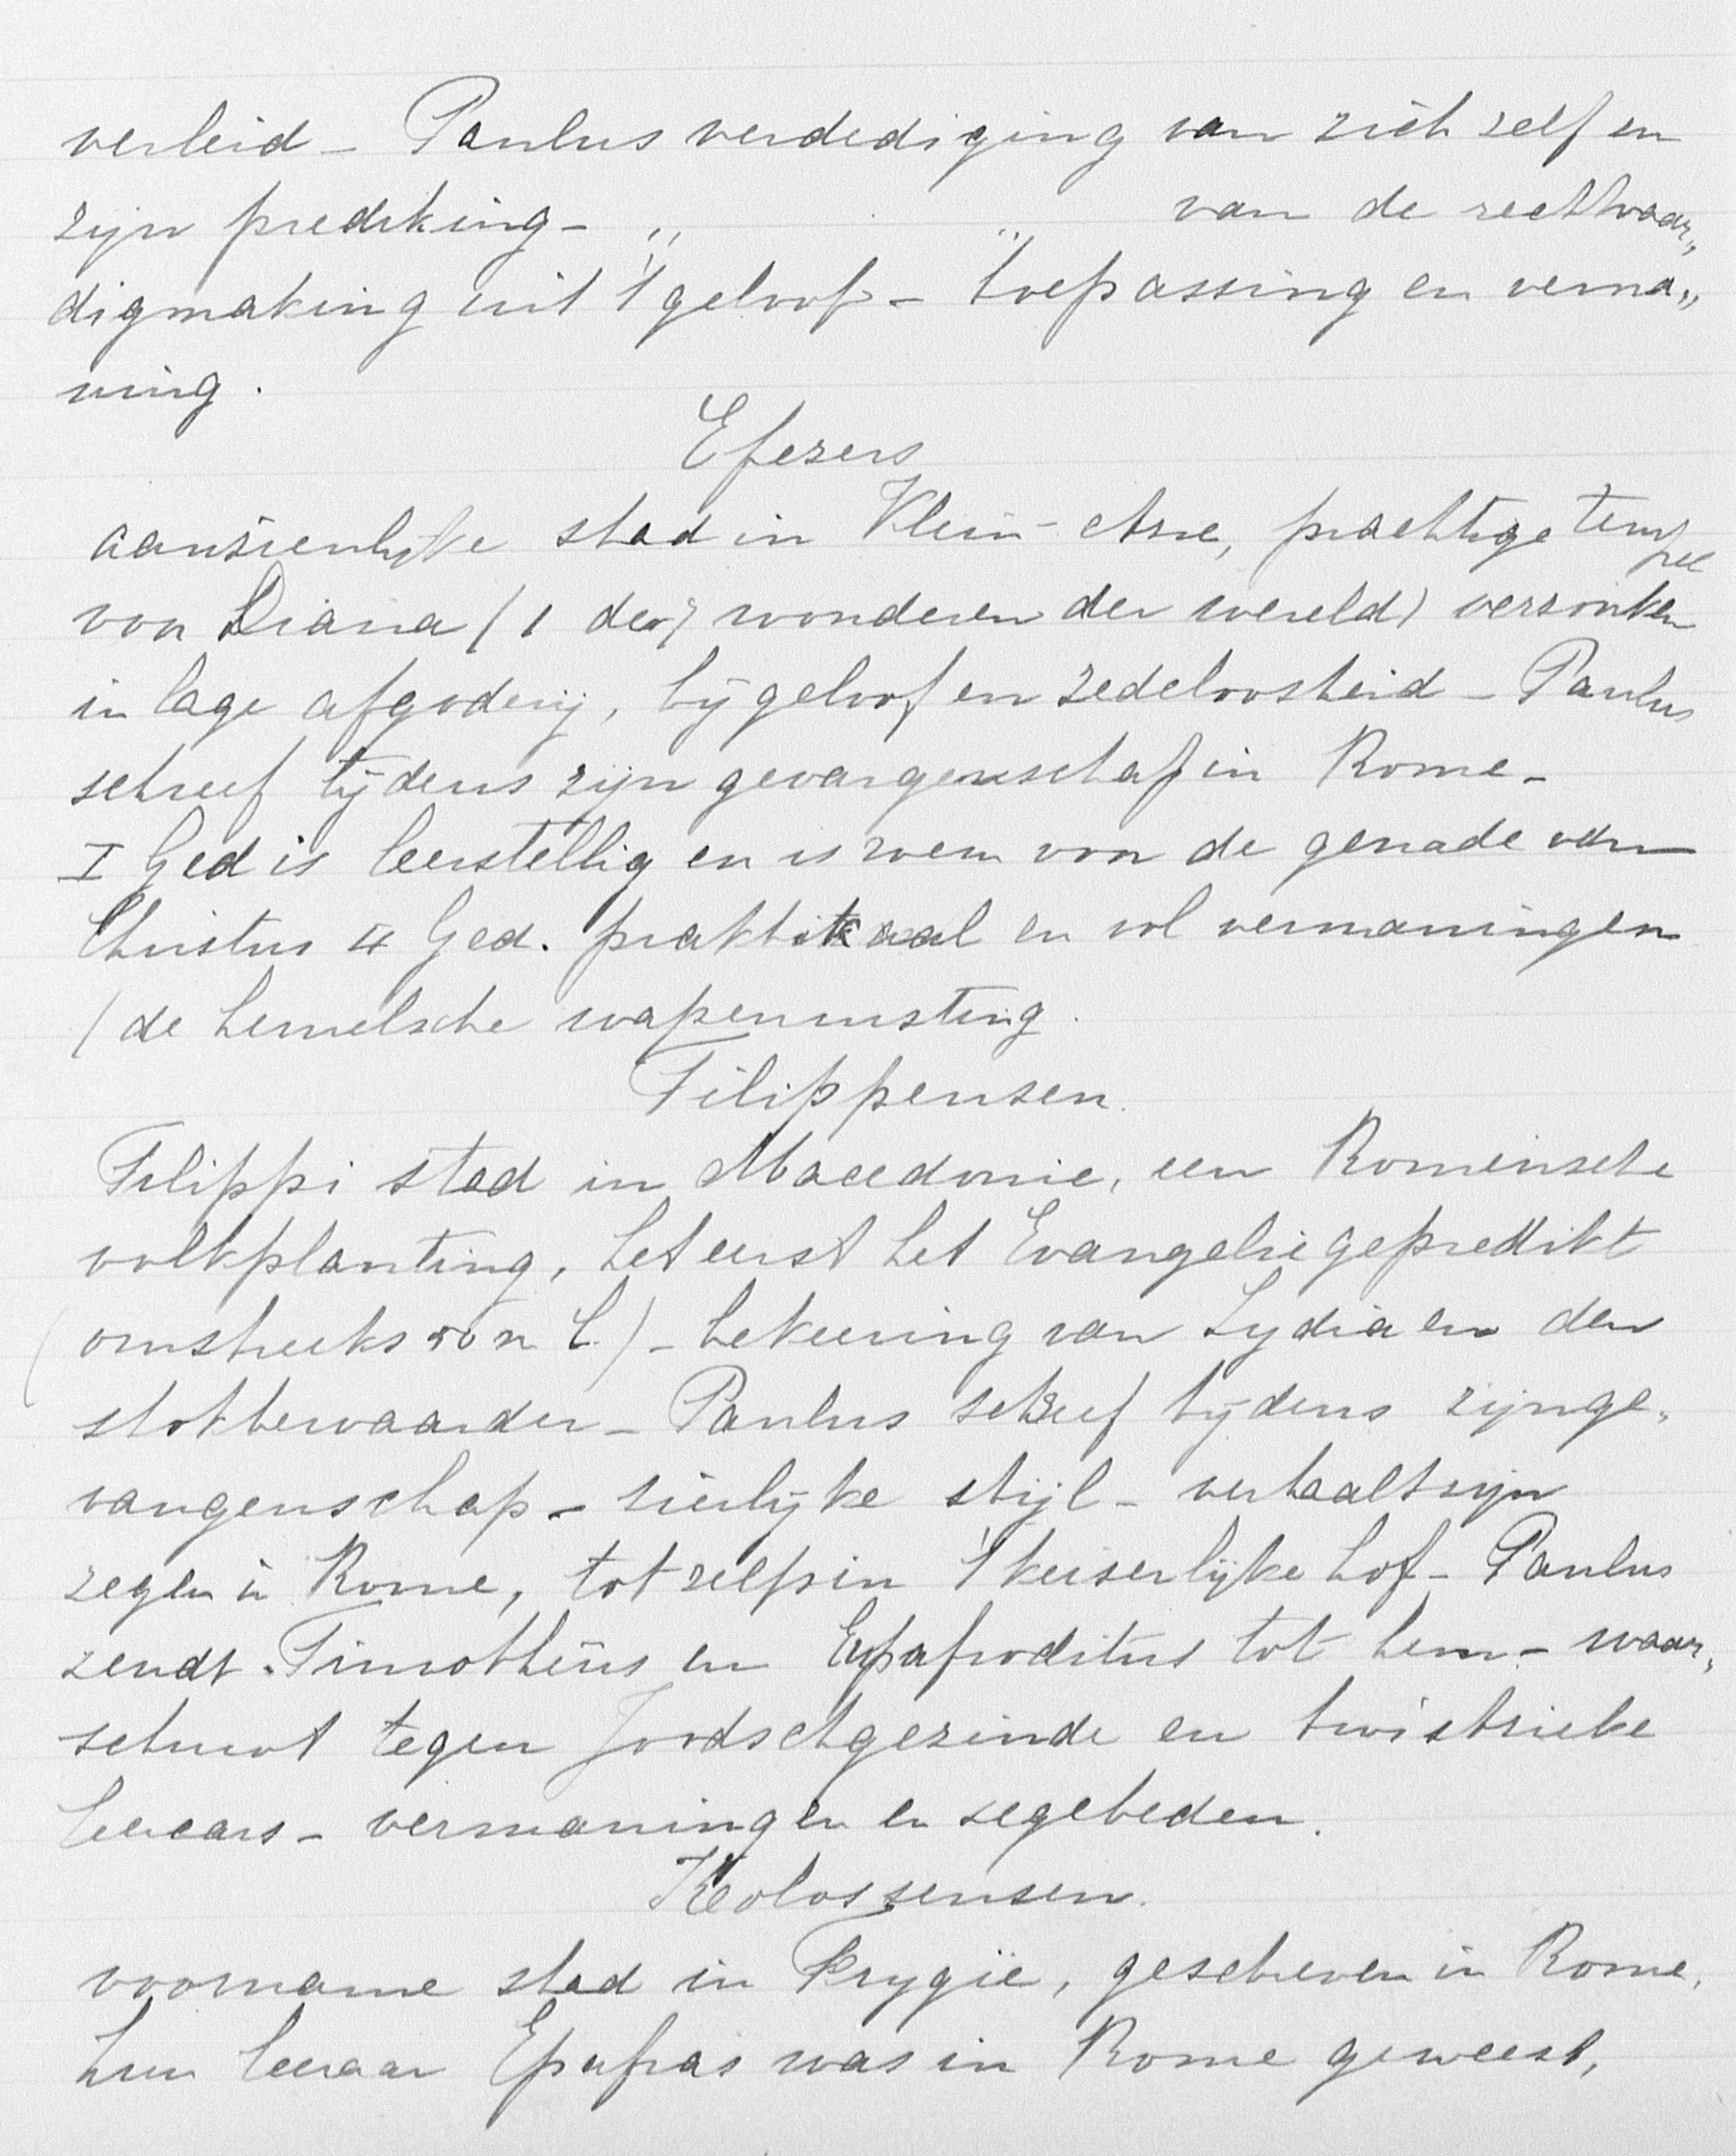 verleid - Paulus verdediging van zich zelf en
zijn prediking - ,, ,, van de rechtvaar„
digmaking uit 't geloof - toepassing en verma„
ning.
Efezers
aanzienlijke stad in Klein-Azie, prachtige tempel
van Diana (1 der 7 wonderen der wereld) verzonken
in lage afgoderij, bijgeloof en zedeloosheid - Paulus
schreef tijdens zijn gevangenschap in Rome -
I Ged is leerstellig en is roem van de genade van
Christus II Ged. praktikaal en vol vermaningen
(de hemelsche wapenrusting.
Filippensen.
Filippi stad in Macedonie, een Romeinsche
volkplanting, het eerst het Evangelie gepredikt
(omstreeks 50 n C.) - bekeering van Lydia en den
stokbewaarder - Paulus schreef tijdens zijn ge„
vangenschap - sierlijke stijl - verhaalt zijn
zegen in Rome, tot zelfs in 't keiserlijke hof - Paulus
zendt Timotheüs en Epafroditus tot hem - waar„
schuwt tegen Joodschgezinde en twistzieke
leeraars - vermaningen en zegebeden.
Kolossensen.
voorname stad in Frygië, geschreven in Rome,
hun leeraar Epafras was in Rome geweest,